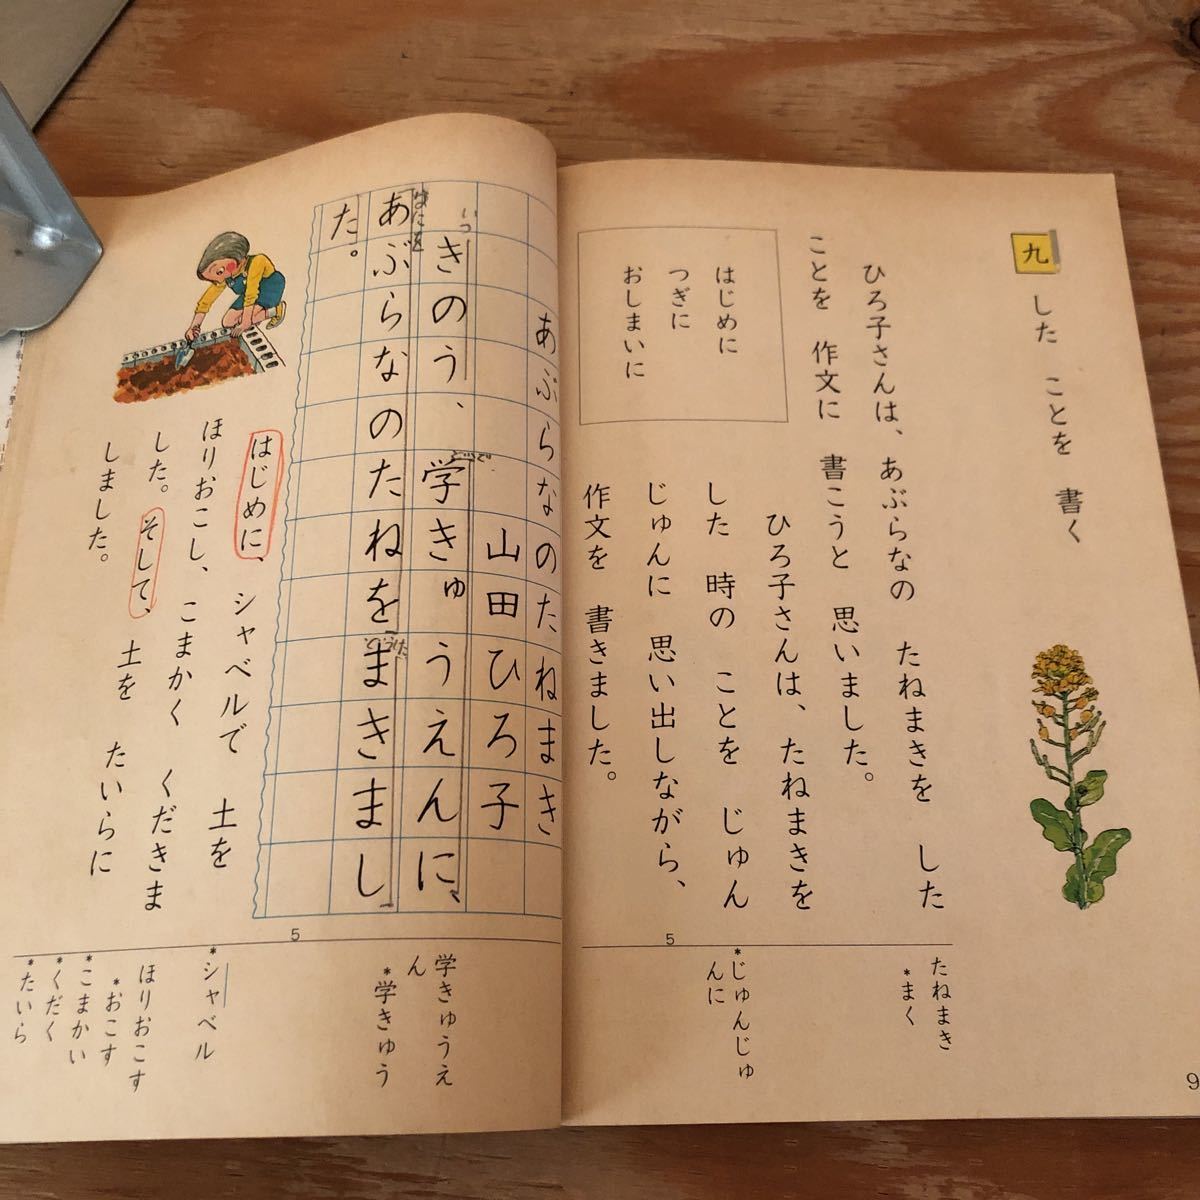 九 した ことを 書く
ひろ子さんは、あぶらなの たねまきを した
ことを 作文に 書こうと 思いました。
ひろ子さんは、たねまきを
した 時の ことを じゅん
じゅんに 思い出しながら、
作文を 書きました。
はじめに
つぎに
おしまいに
5
たねまき
*まく
*じゅんじゅ
んに
9
あぶらなのたねまき
山田ひろ子
いつ
きのう、学きゅうえんに、
どこで
なにを
あぶらなのたねをまきまし
た。
はじめに、シャベルで 土を
ほりおこし、こまかく くだきま
した。そして、土を たいらに
しました。
5
学きゅうえ
ん
*学きゅう
*シャベル
ほりおこす
*おこす
*こまかい
*くだく
*たいら